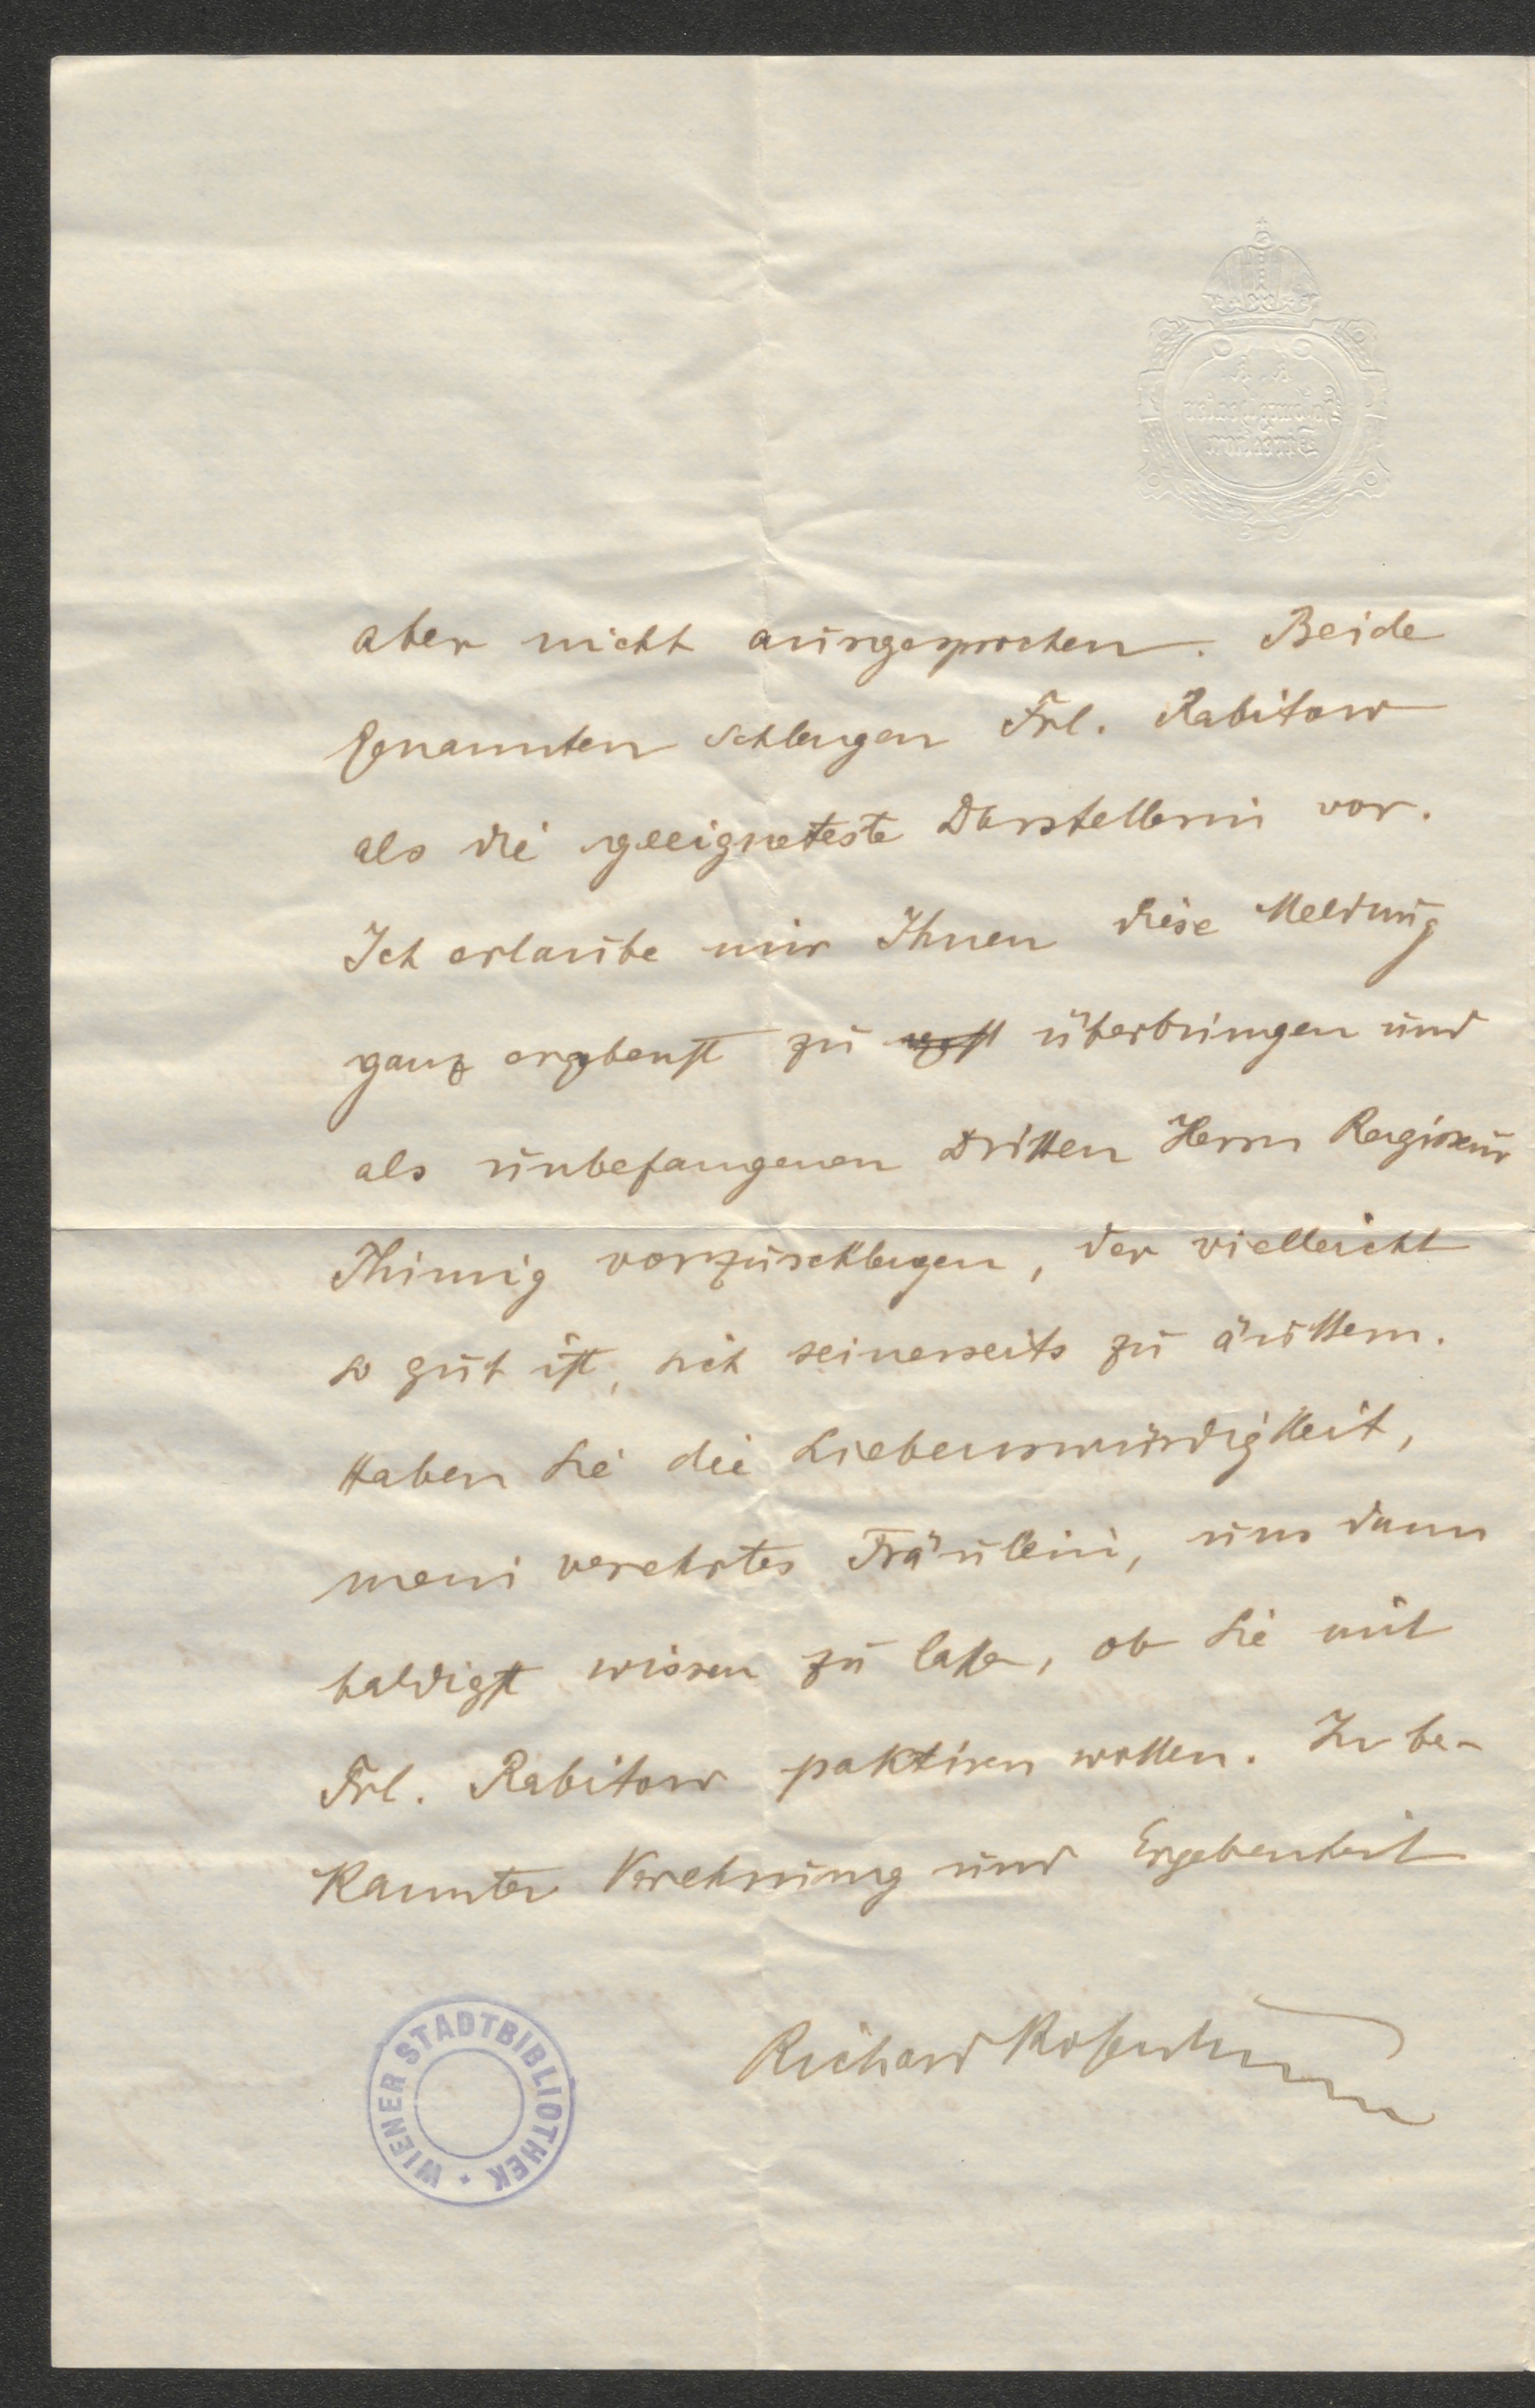 aber nicht ausgesprochen. Beide
Genannten schlugen Frl. Rabitow
als die geeigneteste Darstellerin vor.
Ich erlaube mir Ihnen diese Meldung
ganz ergebenst zu überbringen und
als unbefangenen Dritten Herrn Regisseur
Thimig vorzuschlagen, der vielleicht
so gut ist, sich seinerseits zu äußern.
Haben Sie die Liebenswürdigkeit,
mein verehrtes Fräulein, uns dann
baldigst wissen zu lassen, ob Sie mit
Frl. Rabitow paktiren wollen. In be-
kannter Verehrung und Ergebenheit
Richard Rosenbaum
WIENER STADTBIBLIOTHEK